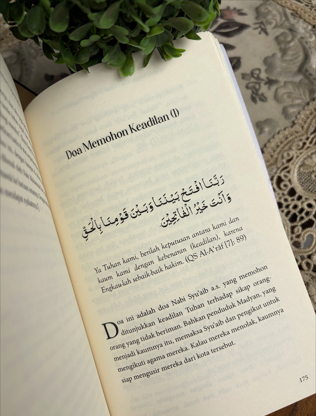 Doa Memohon Keadilan (1)
رَبَّنَا افْتَحْ بَيْنَنَا وَبَيْنَ قَوْمِنَا بِالْحَقِّ
وَأَنْتَ خَيْرُ الْفَاتِحِيْنَ
Ya Tuhan kami, berilah keputusan antara kami dan
kaum kami dengan kebenaran (keadilan), karena
Engkaulah sebaik-baik hakim. (QS Al-A'râf [7]: 89)
Doa ini adalah doa Nabi Syu'aib a.s. yang memohon
ditunjukkan keadilan Tuhan terhadap sikap orang-
orang yang tidak beriman. Bahkan penduduk Madyan, yang
menjadi kaumnya itu, memaksa Syu'aib dan pengikut untuk
mengikuti agama mereka. Kalau mereka menolak, kaumnya
siap mengusir mereka dari kota tersebut.
175